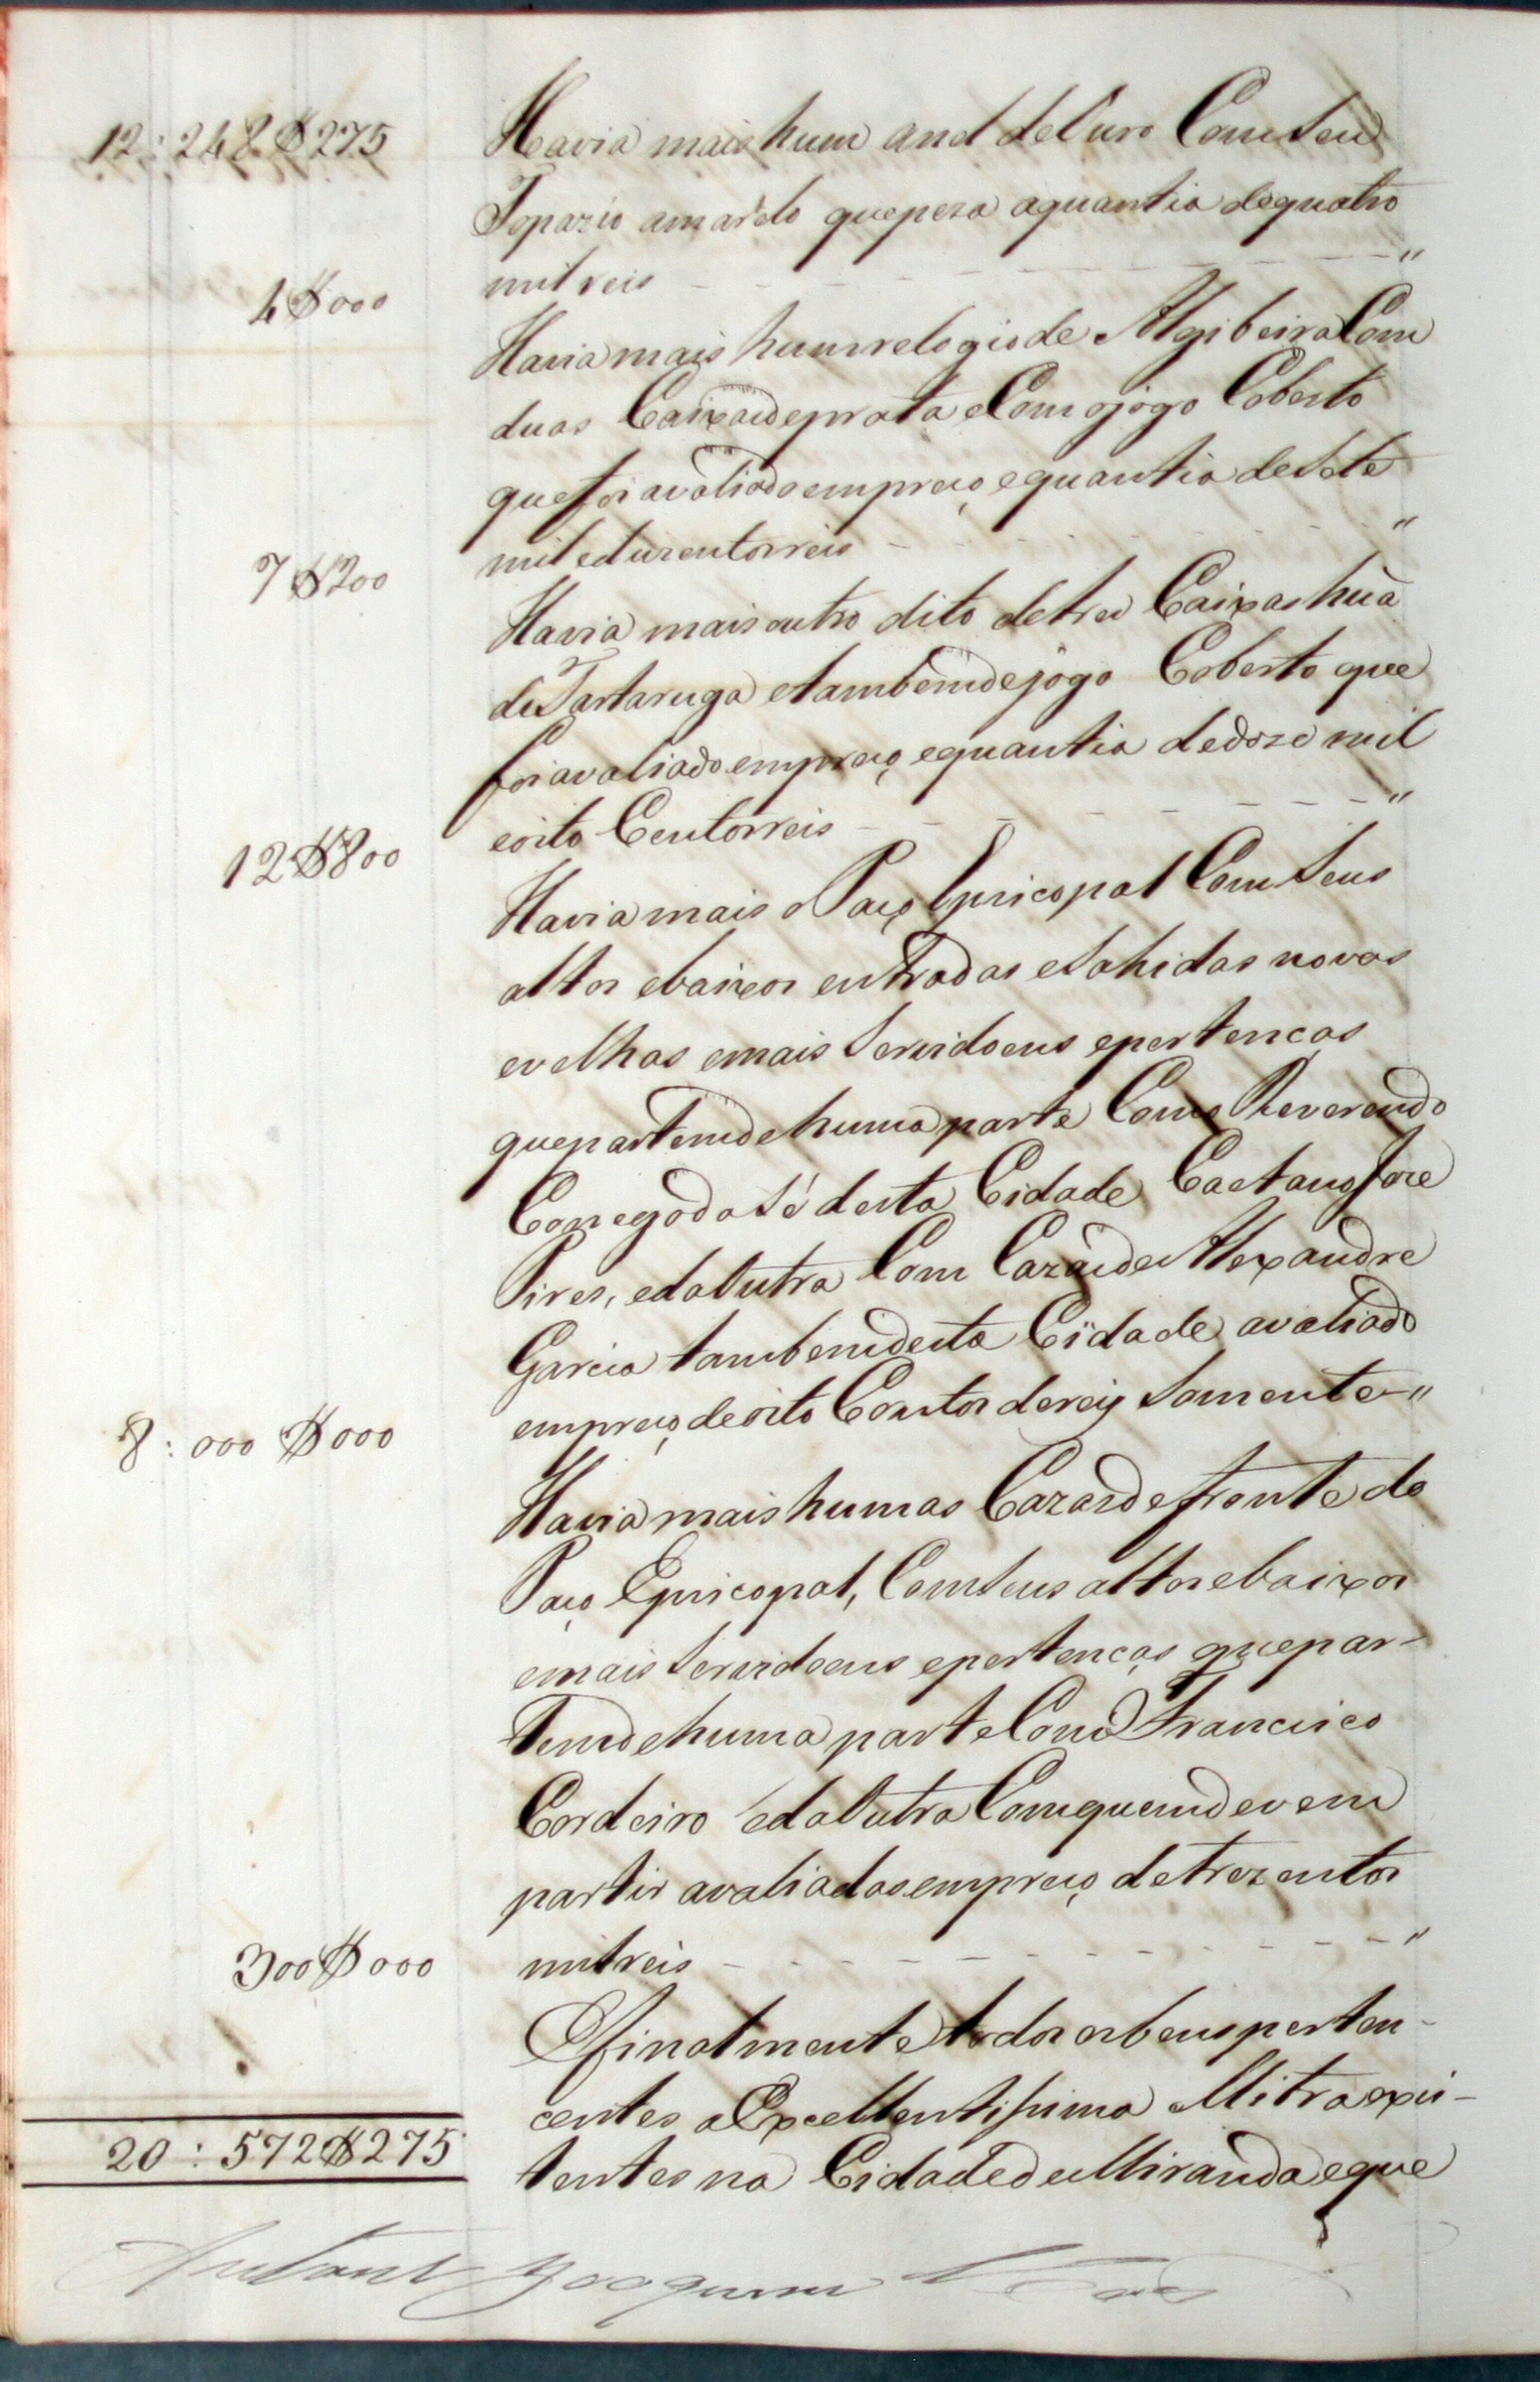 12:248$275
Havia mais hum anel de Ouro Com Seu
Topazio amarelo que peza a quantia de quatro
mil reis - - - - - - - - - - "
4$000
Havia mais hum relogio de Algibeira Com
duas Caixas de prata e Com o jogo Coberto
que foi avaliado em preço e quantia de Sete
mil e duzentos reis - - - - - - - "
7$200
Havia mais outro dito de tres Caixas huã
de Tartaruga e tambem de jogo Coberto que
foi avaliado em preço e quantia de doze mil
e oito Centos reis - - - - - - - "
12$800
Havia mais o Paço Episcopal Com Seus
altos e baixos entradas e Sahidas novas
e velhas e mais Servidoens e pertenças
que partem de huma parte Com o Reverendo
Conego da Sé desta Cidade Caetano Joze
Pires, e da Outra Com Cazas de Alexandre
Garcia tambem desta Cidade avaliado
em preço de oito Contos de reis Somente - "
8:000$000
Havia mais humas Cazas de fronte do
Paço Episcopal, Com Seus altos e baixos
e mais Servidoens e pertenças que par-
tem de huma parte Com Francisco
Cordeiro e da Outra Com quem devem
partir avaliadas em preço de trezentos
mil reis - - - - - - - - - - "
300$000
E finalmente todos os bens perten-
centes a Excellentissima Mitra exis-
tentes na Cidade de Miranda e que
20:572$275
Antonio Joaquim